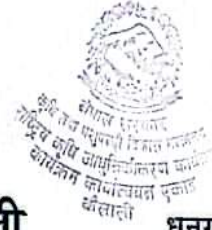 नेपाल सरकार
कृषि तथा पशुपन्छी विकास मन्त्रालय
राष्ट्रिय कृषि आधुनिकीकरण कार्यक्रम
कार्यक्रम कार्यान्वयन एकाई
कैलाली
ली
धनग